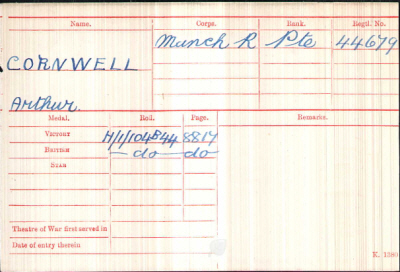 Name. Corps. Rank. Regtl. No.
CORNWELL Munch R Pte 44679
Arthur.
Medal. Roll. Page. Remarks.
VICTORY H/1/104B44 8817
BRITISH do do
STAR
Theatre of War first served in
Date of entry therein
K. 1380